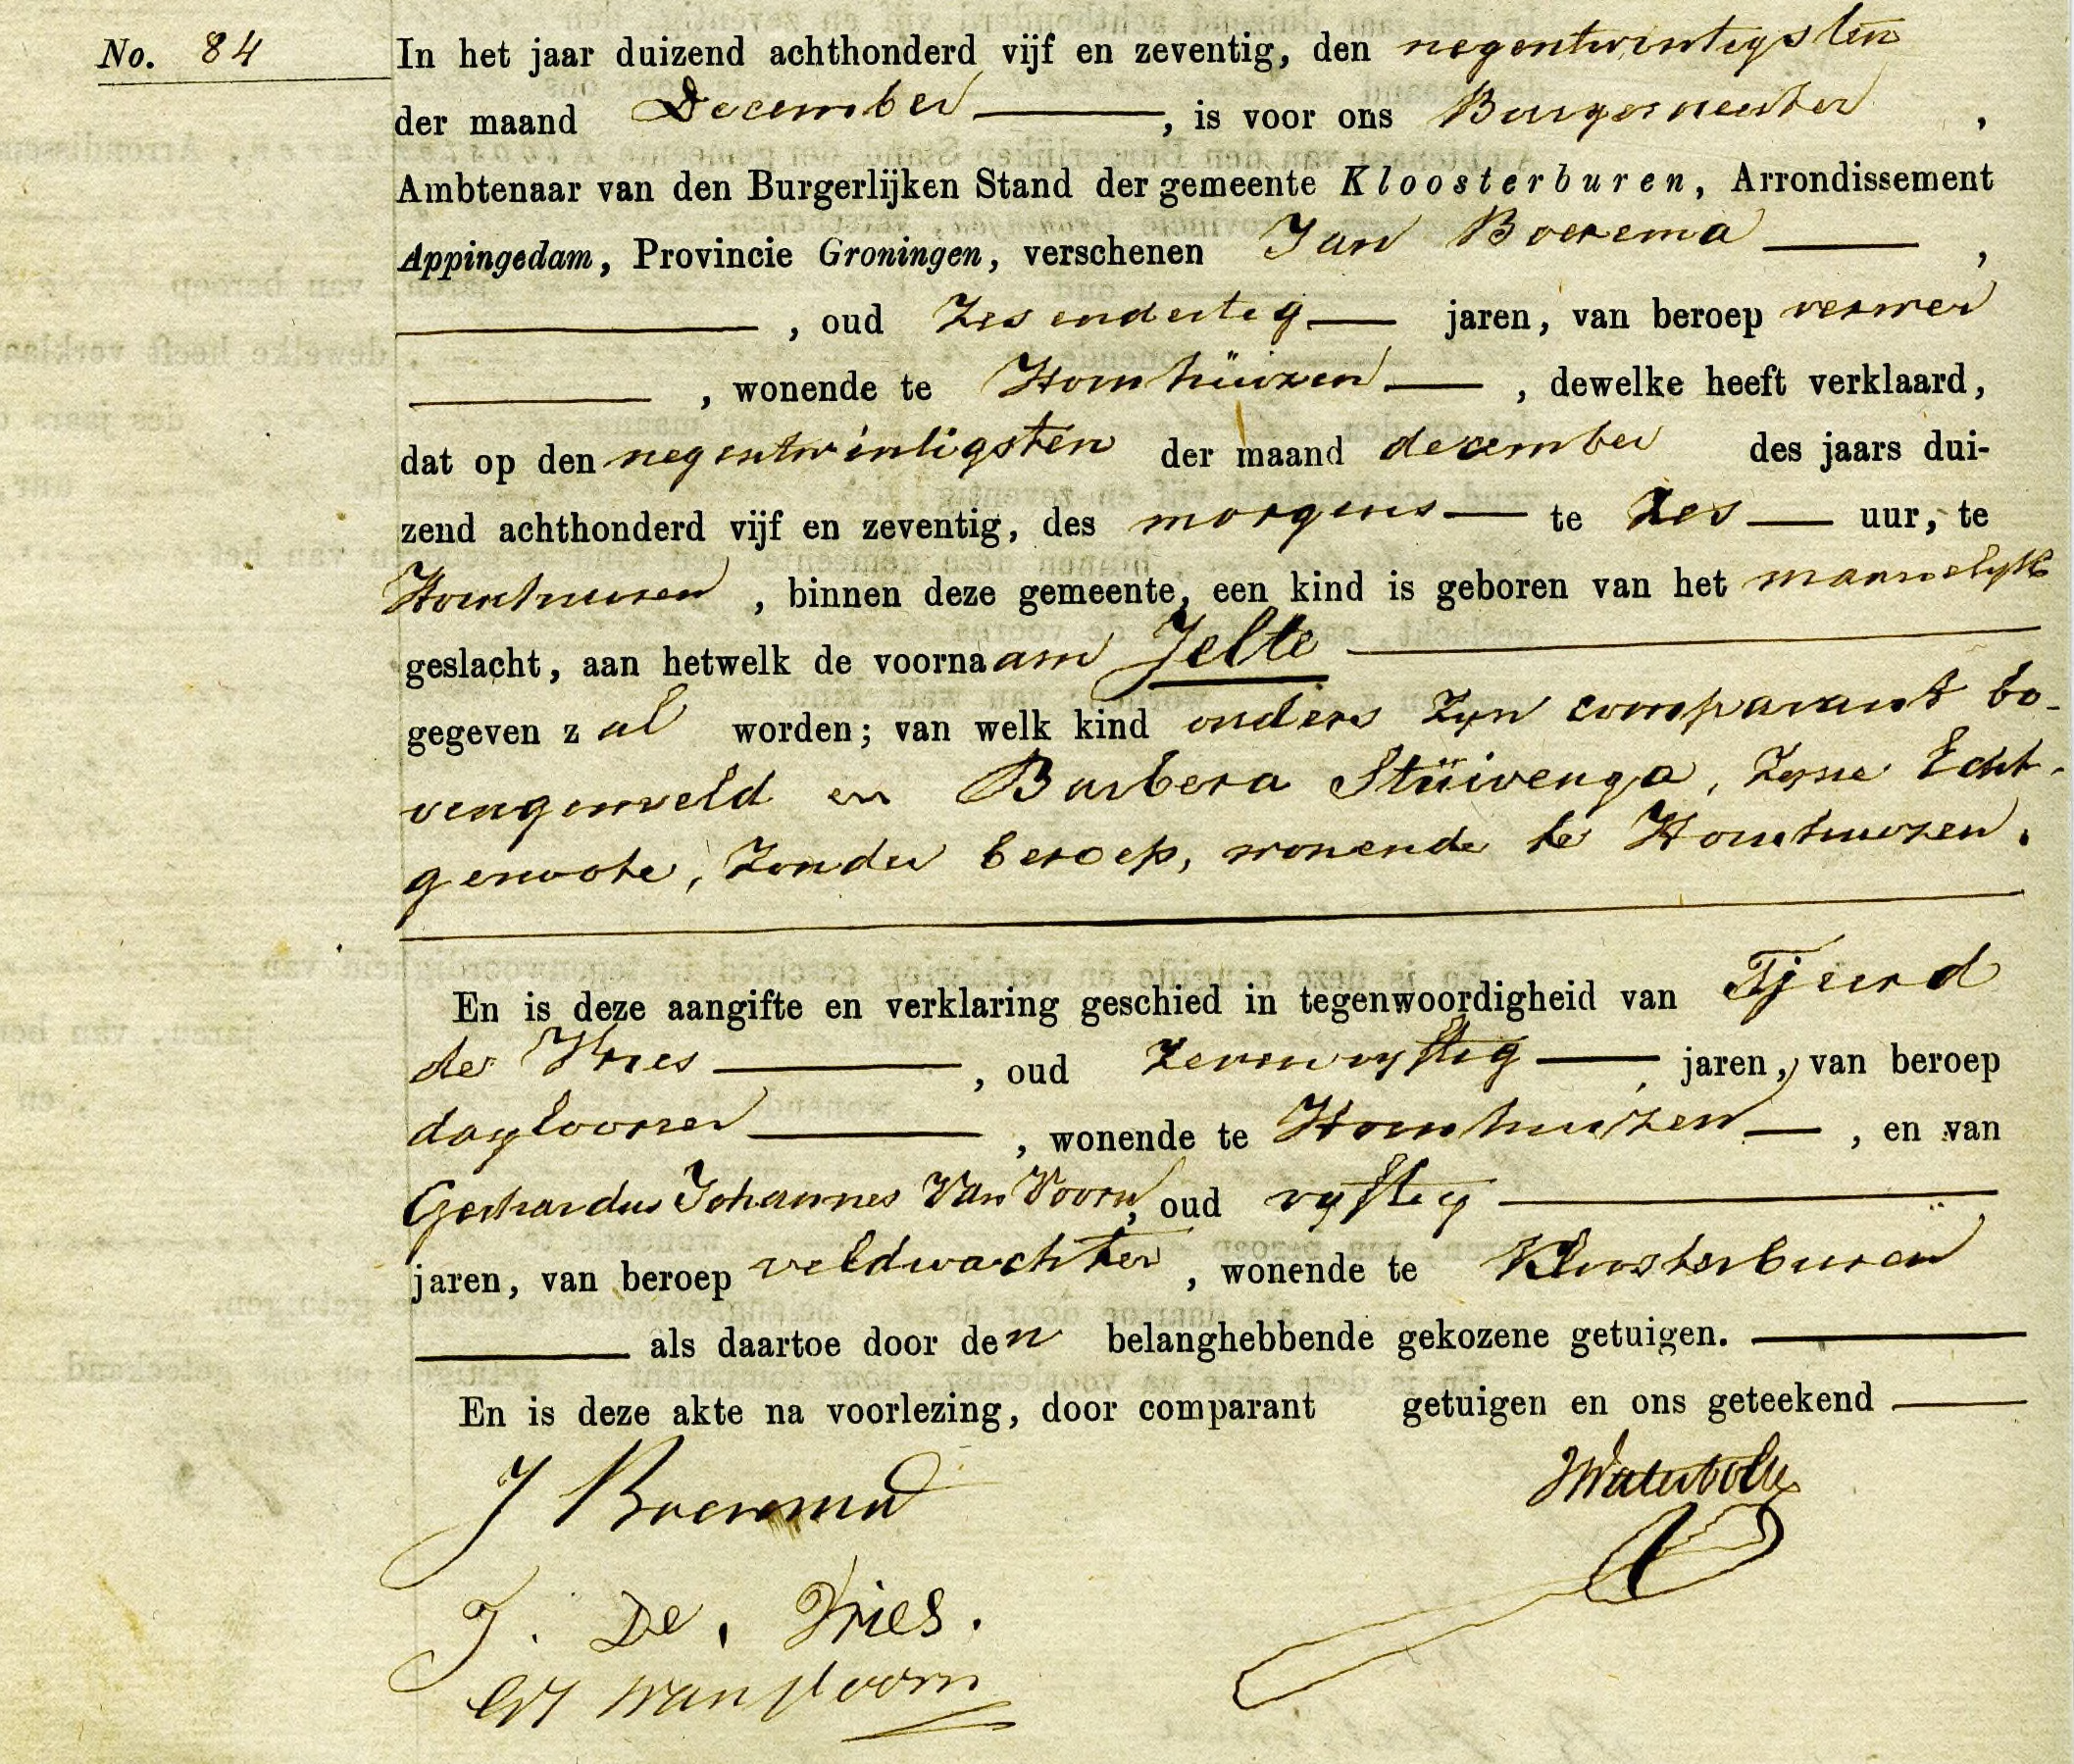 No. 84
In het jaar duizend achthonderd vijf en zeventig, den negentwintigsten
der maand December, is voor ons Burgemeester,
Ambtenaar van den Burgerlijken Stand der gemeente Kloosterburen, Arrondissement
Appingedam, Provincie Groningen, verschenen Jan Boerema,
, oud Zesendertig jaren, van beroep verwer
, wonende te Hornhuizen, dewelke heeft verklaard,
dat op den negentwintigsten der maand december des jaars dui-
zend achthonderd vijf en zeventig, des morgens te zes uur, te
Hornhuizen, binnen deze gemeente, een kind is geboren van het mannelyk
geslacht, aan hetwelk de voornaam Jelte
gegeven zal worden; van welk kind ouders zyn comparant bo-
vengemeld en Barbera Stuivenga, zyne Echt-
genoote, zonder beroep, wonende te Hornhuizen.
En is deze aangifte en verklaring geschied in tegenwoordigheid van Tjeerd
de Vries, oud zevenvyftig jaren, van beroep
daglooner, wonende te Hornhuizen, en van
Gerhardus Johannes Van Voorn, oud vyftig
jaren, van beroep veldwachter, wonende te Kloosterburen
als daartoe door den belanghebbende gekozene getuigen.
En is deze akte na voorlezing, door comparant getuigen en ons geteekend
J Boerema
Waterbolk
T. De. Vries.
GJ van Voorn